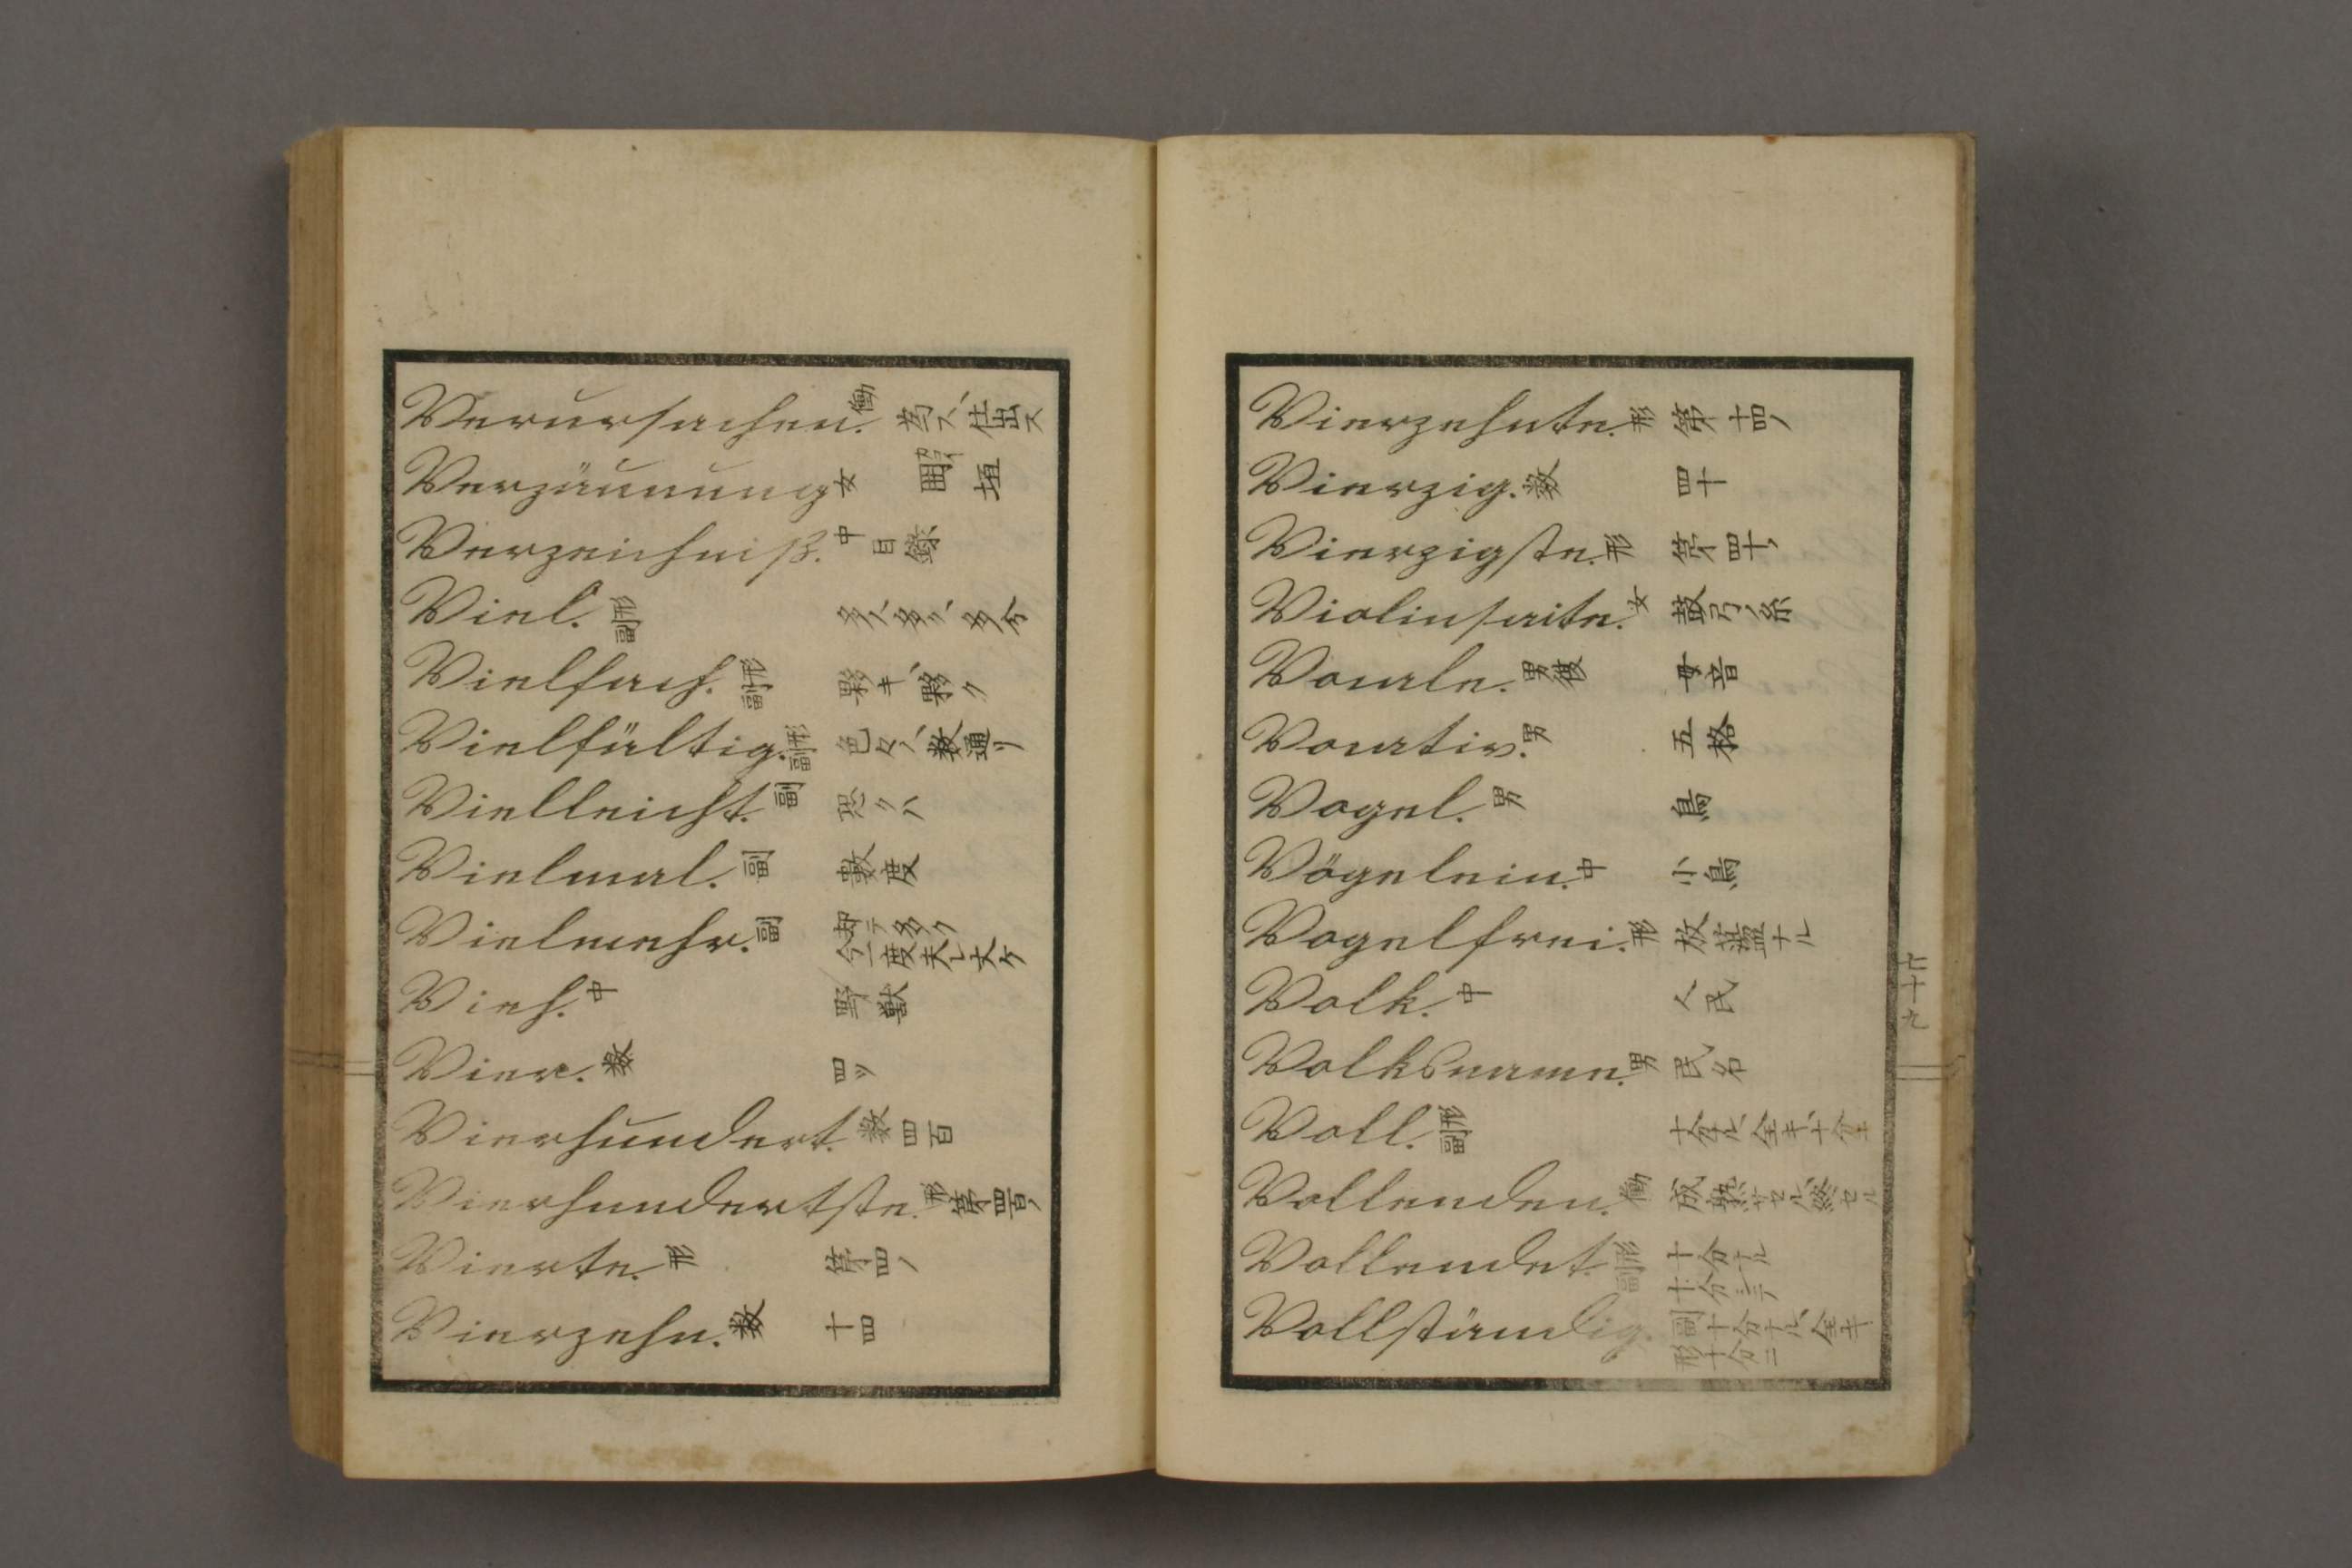 Verursachen. 働 為ス、仕出ス
Verzäunung 女 圍 垣
Verzeichniß. 中 目錄
Viel. 形副
Vielfach. 形副 夥キ、夥ク
Vielfältig. 形副 色々ノ、数通リ
Vielleicht. 副 恐クハ
Vielmal. 副 數度
Vielmehr. 副 却テ多ク
Vieh. 中 野獣
Vier. 数 四ツ
Vierhundert. 数 四百
Vierhundertste. 形 第四百ノ
Vierte. 形 第四ノ
Vierzehn. 数 十四
Vierzehnte. 形 第十四ノ
Vierzig. 数 四十
Vierzigste. 形 第四十ノ
Violinsaite. 女 鼓弓ノ糸
Vocale. 男複 母音
Vocativ. 男 五格
Vogel. 男 鳥
Vögelein. 中 小鳥
Vogelfrei. 形 放蕩ナル
Volk. 中 人民
Volksname. 男 民名
Voll. 形副 十分ナル、全キ、十分ニ
Vollenden. 働 成熟サセル、終セル
Vollendet. 形副 十分ナル
十分ニテ
Vollständig. 形副 十分ナル、全キ
十分ニ
七十九